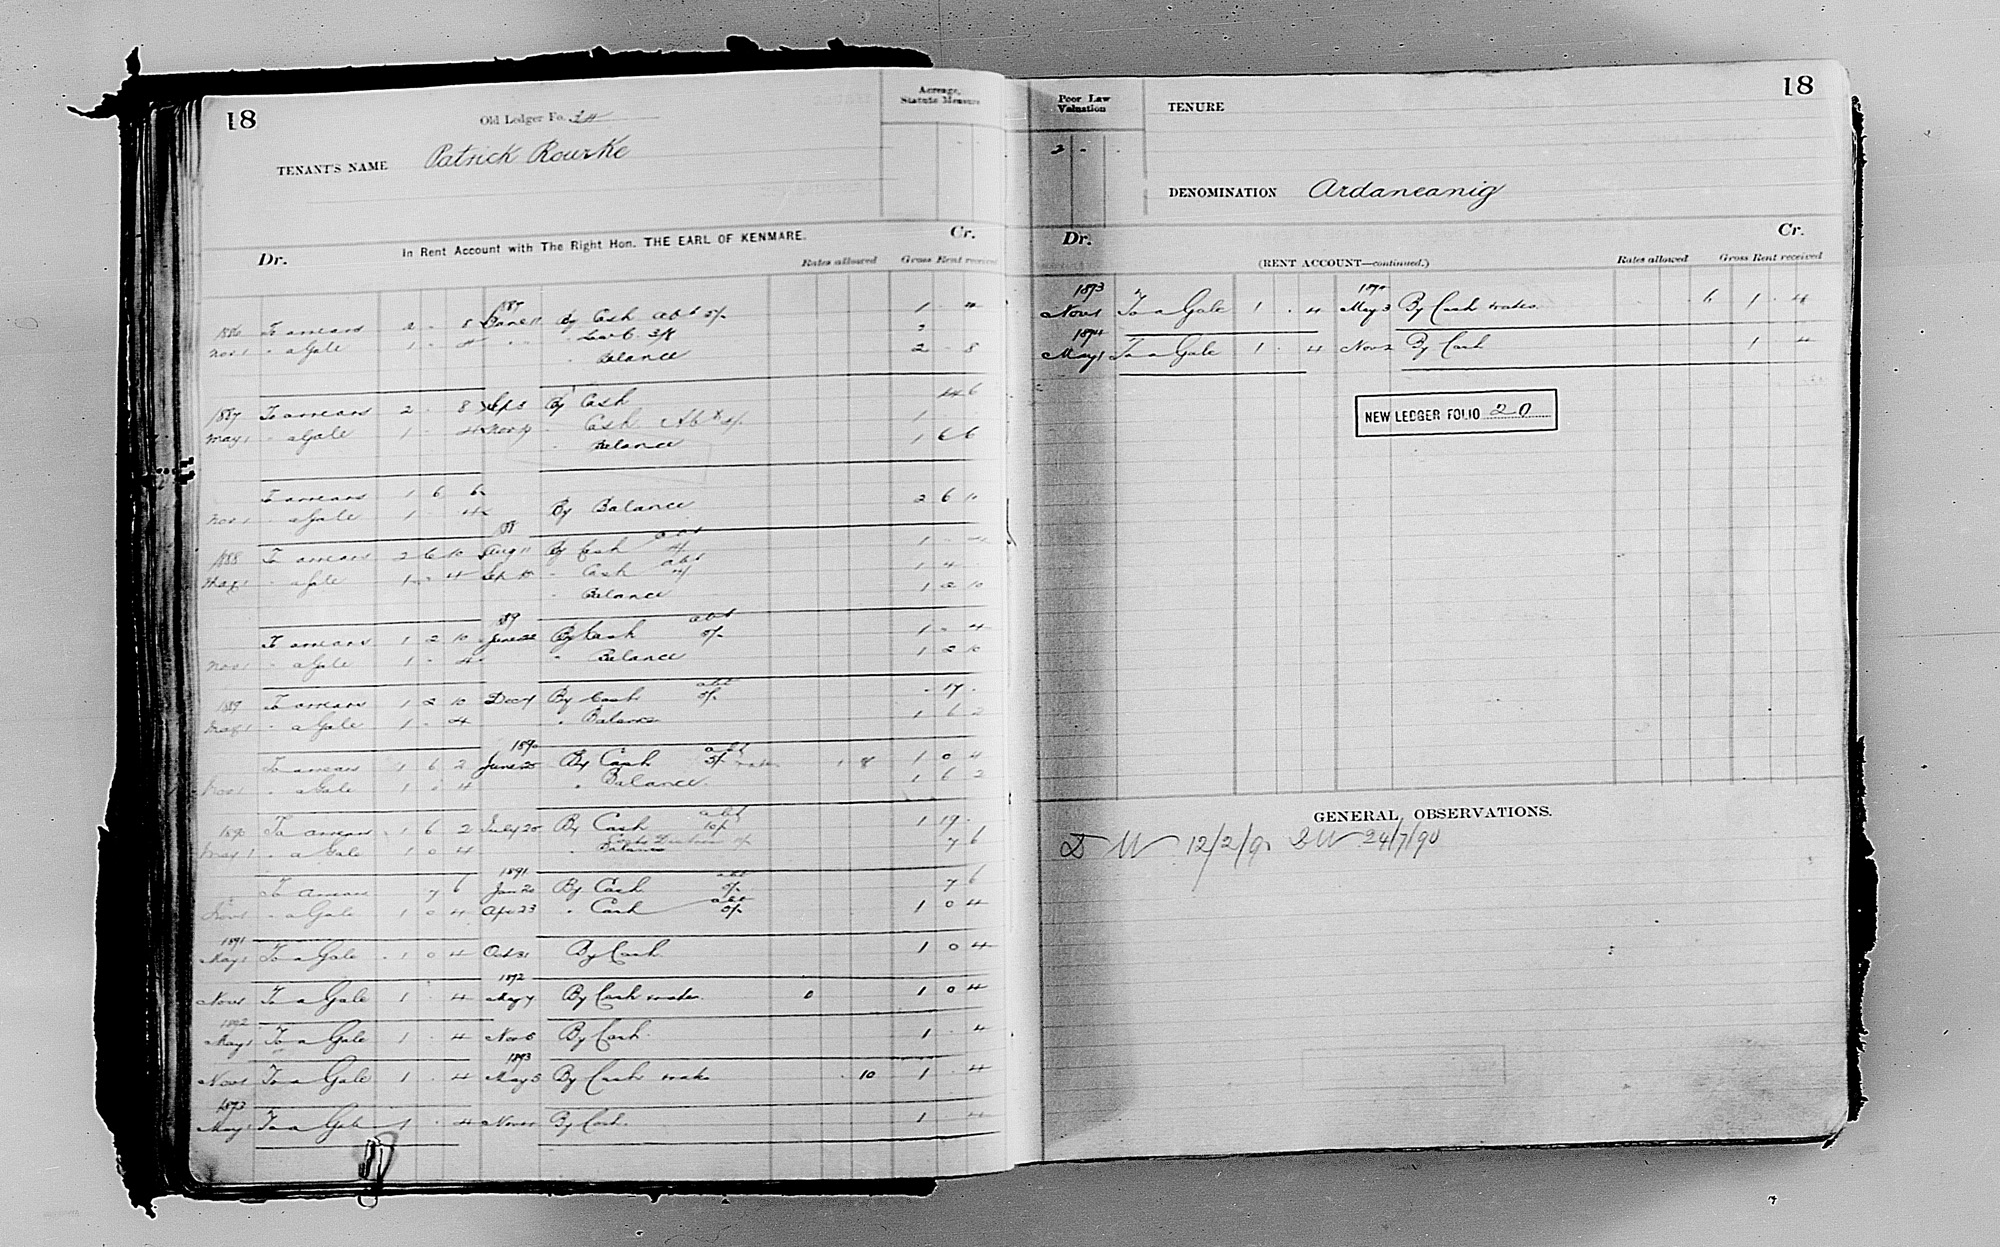 18
Old Ledger Fo.
Acreage,
Statute Measure
TENANT'S NAME Patrick Rourke
In Rent Account with The Right Hon. THE EARL OF KENMARE.
Dr. Cr.
Rates allowed Gross Rent received
187
1886 To arrears 2 - 8 June 11 By Cash abt 5/- 1 - 4
Nov 1 " a Gale 1 - 4
" Balance 2 - 8
1887 To arrears 2 - 8 Sep 8 By Cash 14 6
May 1 " a Gale 1 - 4 Nov " Cash Abt 1 -
" Balance 1 6 6
To arrears 1 6 6
Nov 1 " a Gale 1 - 4 By Balance 2 6 10
88
1888 To arrears 2 6 10 Aug 11 By Cash abt 1 - 4
May 1 " a Gale 1 - 4 Sep " Cash abt 1 4 -
" Balance 1 2 10
89
To arrears 1 2 10 June 22 By Cash abt 5/- 1 - 4
Nov 1 " a Gale 1 - 4 " Balance 1 2 10
1889 To arrears 1 2 10 Dec 4 By Cash abt 5/- - 17 -
May 1 " a Gale 1 - 4 " Balance 1 6 2
1890
To arrears 1 6 2 June 25 By Cash abt 5/- rates 1 8 1 0 4
Nov 1 " a Gale 1 0 4 " Balance 1 6 2
1890 To arrears 1 6 2 July 20 By Cash abt 10/- 1 19 -
May 1 " a Gale 1 0 4 " Balance 7 6
1891
To arrears 7 6 Jan 20 By Cash abt 5/- 7 6
Nov 1 " a Gale 1 0 4 Apr 23 " Cash abt 5/- 1 0 4
1891
May 1 To a Gale 1 0 4 Oct 31 By Cash 1 0 4
1892
Nov 1 To a Gale 1 - 4 May 7 By Cash rates 0 1 0 4
1892
May 1 To a Gale 1 - 4 Nov 5 By Cash 1 - 4
1893
Nov 1 To a Gale 1 - 4 May 5 By Cash rates - 10 1 - 4
1893
May 1 To a Gale 1 - 4 Nov By Cash 1 - 4
Poor Law
Valuation
TENURE
18
DENOMINATION Ardaneanig
Dr. Cr.
(RENT ACCOUNT—continued.) Rates allowed Gross Rent received
1893
Nov 1 To a Gale 1 - 4 May 3 By Cash rates 6 1 - 4
1894
May 1 To a Gale 1 - 4 Nov 2 By Cash 1 - 4
NEW LEDGER FOLIO 20
GENERAL OBSERVATIONS.
12/2/90 24/7/90